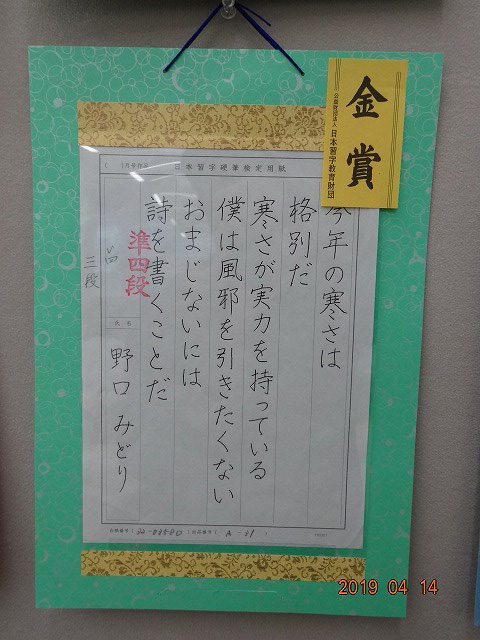 金賞
公益財団法人 日本習字教育財団
( )月号作品 日本習字硬筆検定用紙
今年の寒さは
格別だ
寒さが実力を持っている
僕は風邪を引きたくない
おまじないには
詩を書くことだ
準四段
三段
氏名
野口 みどり
2019 04 14